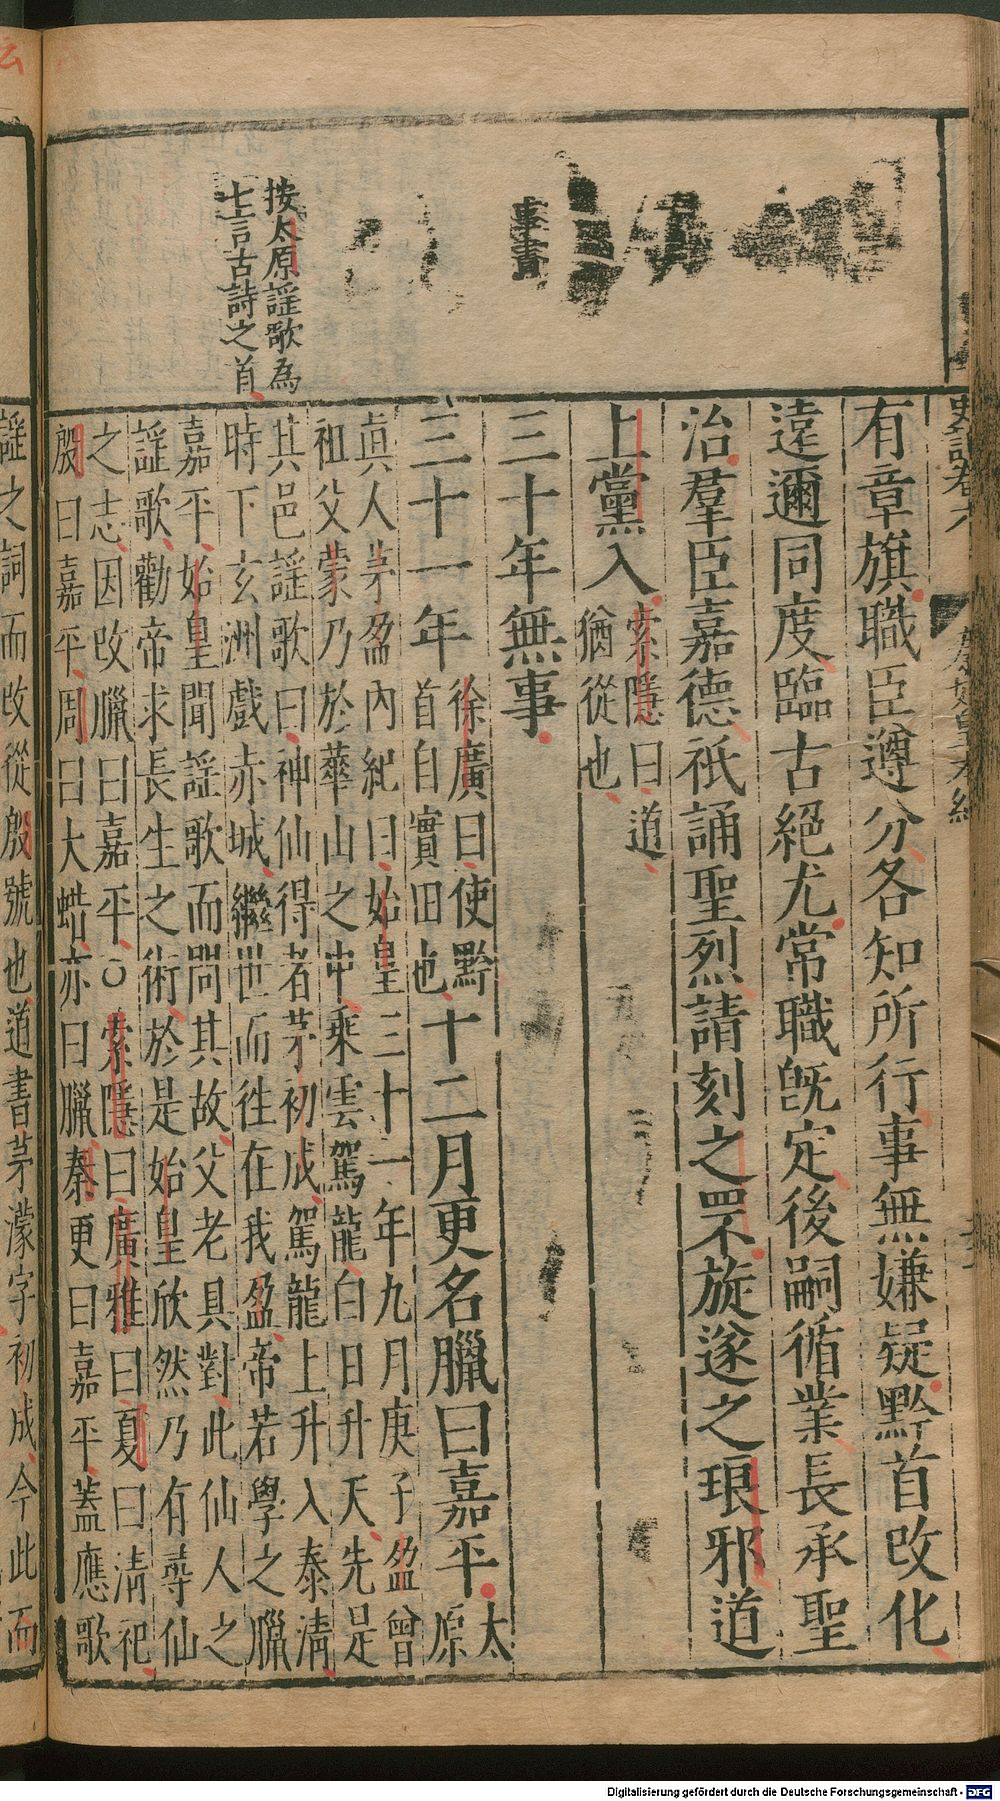 有章旗職臣遵分各知所行事無嫌疑黔首改化
遠邇同度臨古絕尤常職旣定後嗣循業長承聖
治羣臣嘉德祇誦聖烈請刻之罘旋遂之琅邪道
上黨入索隱曰道
猶從也
三十年無事
三十一年徐廣曰使黔
首自實田也十二月更名臘曰嘉平太
原
眞人茅盈內紀曰始皇三十一年九月庚子盈曾
祖父蒙乃於華山之中乘雲駕龍白日升天先是
其邑謡歌曰神仙得者茅初成駕龍上升入泰清
時下玄洲戲赤城繼世而往在我盈帝若學之臘
嘉平始皇聞謡歌而問其故父老具對此仙人之
謡歌勸帝求長生之術於是始皇欣然乃有尋仙
之志因改臘曰嘉平○索隱曰廣雅曰夏曰清祀
殷曰嘉平周曰大蜡亦曰臘秦更曰嘉平蓋應歌
謡之詞而改從殷號也道書茅濛字初成今此而
按太原謡歌為
七言古詩之首
史記卷六
秦始皇本紀
Digitalisierung gefördert durch die Deutsche Forschungsgemeinschaft - DFG